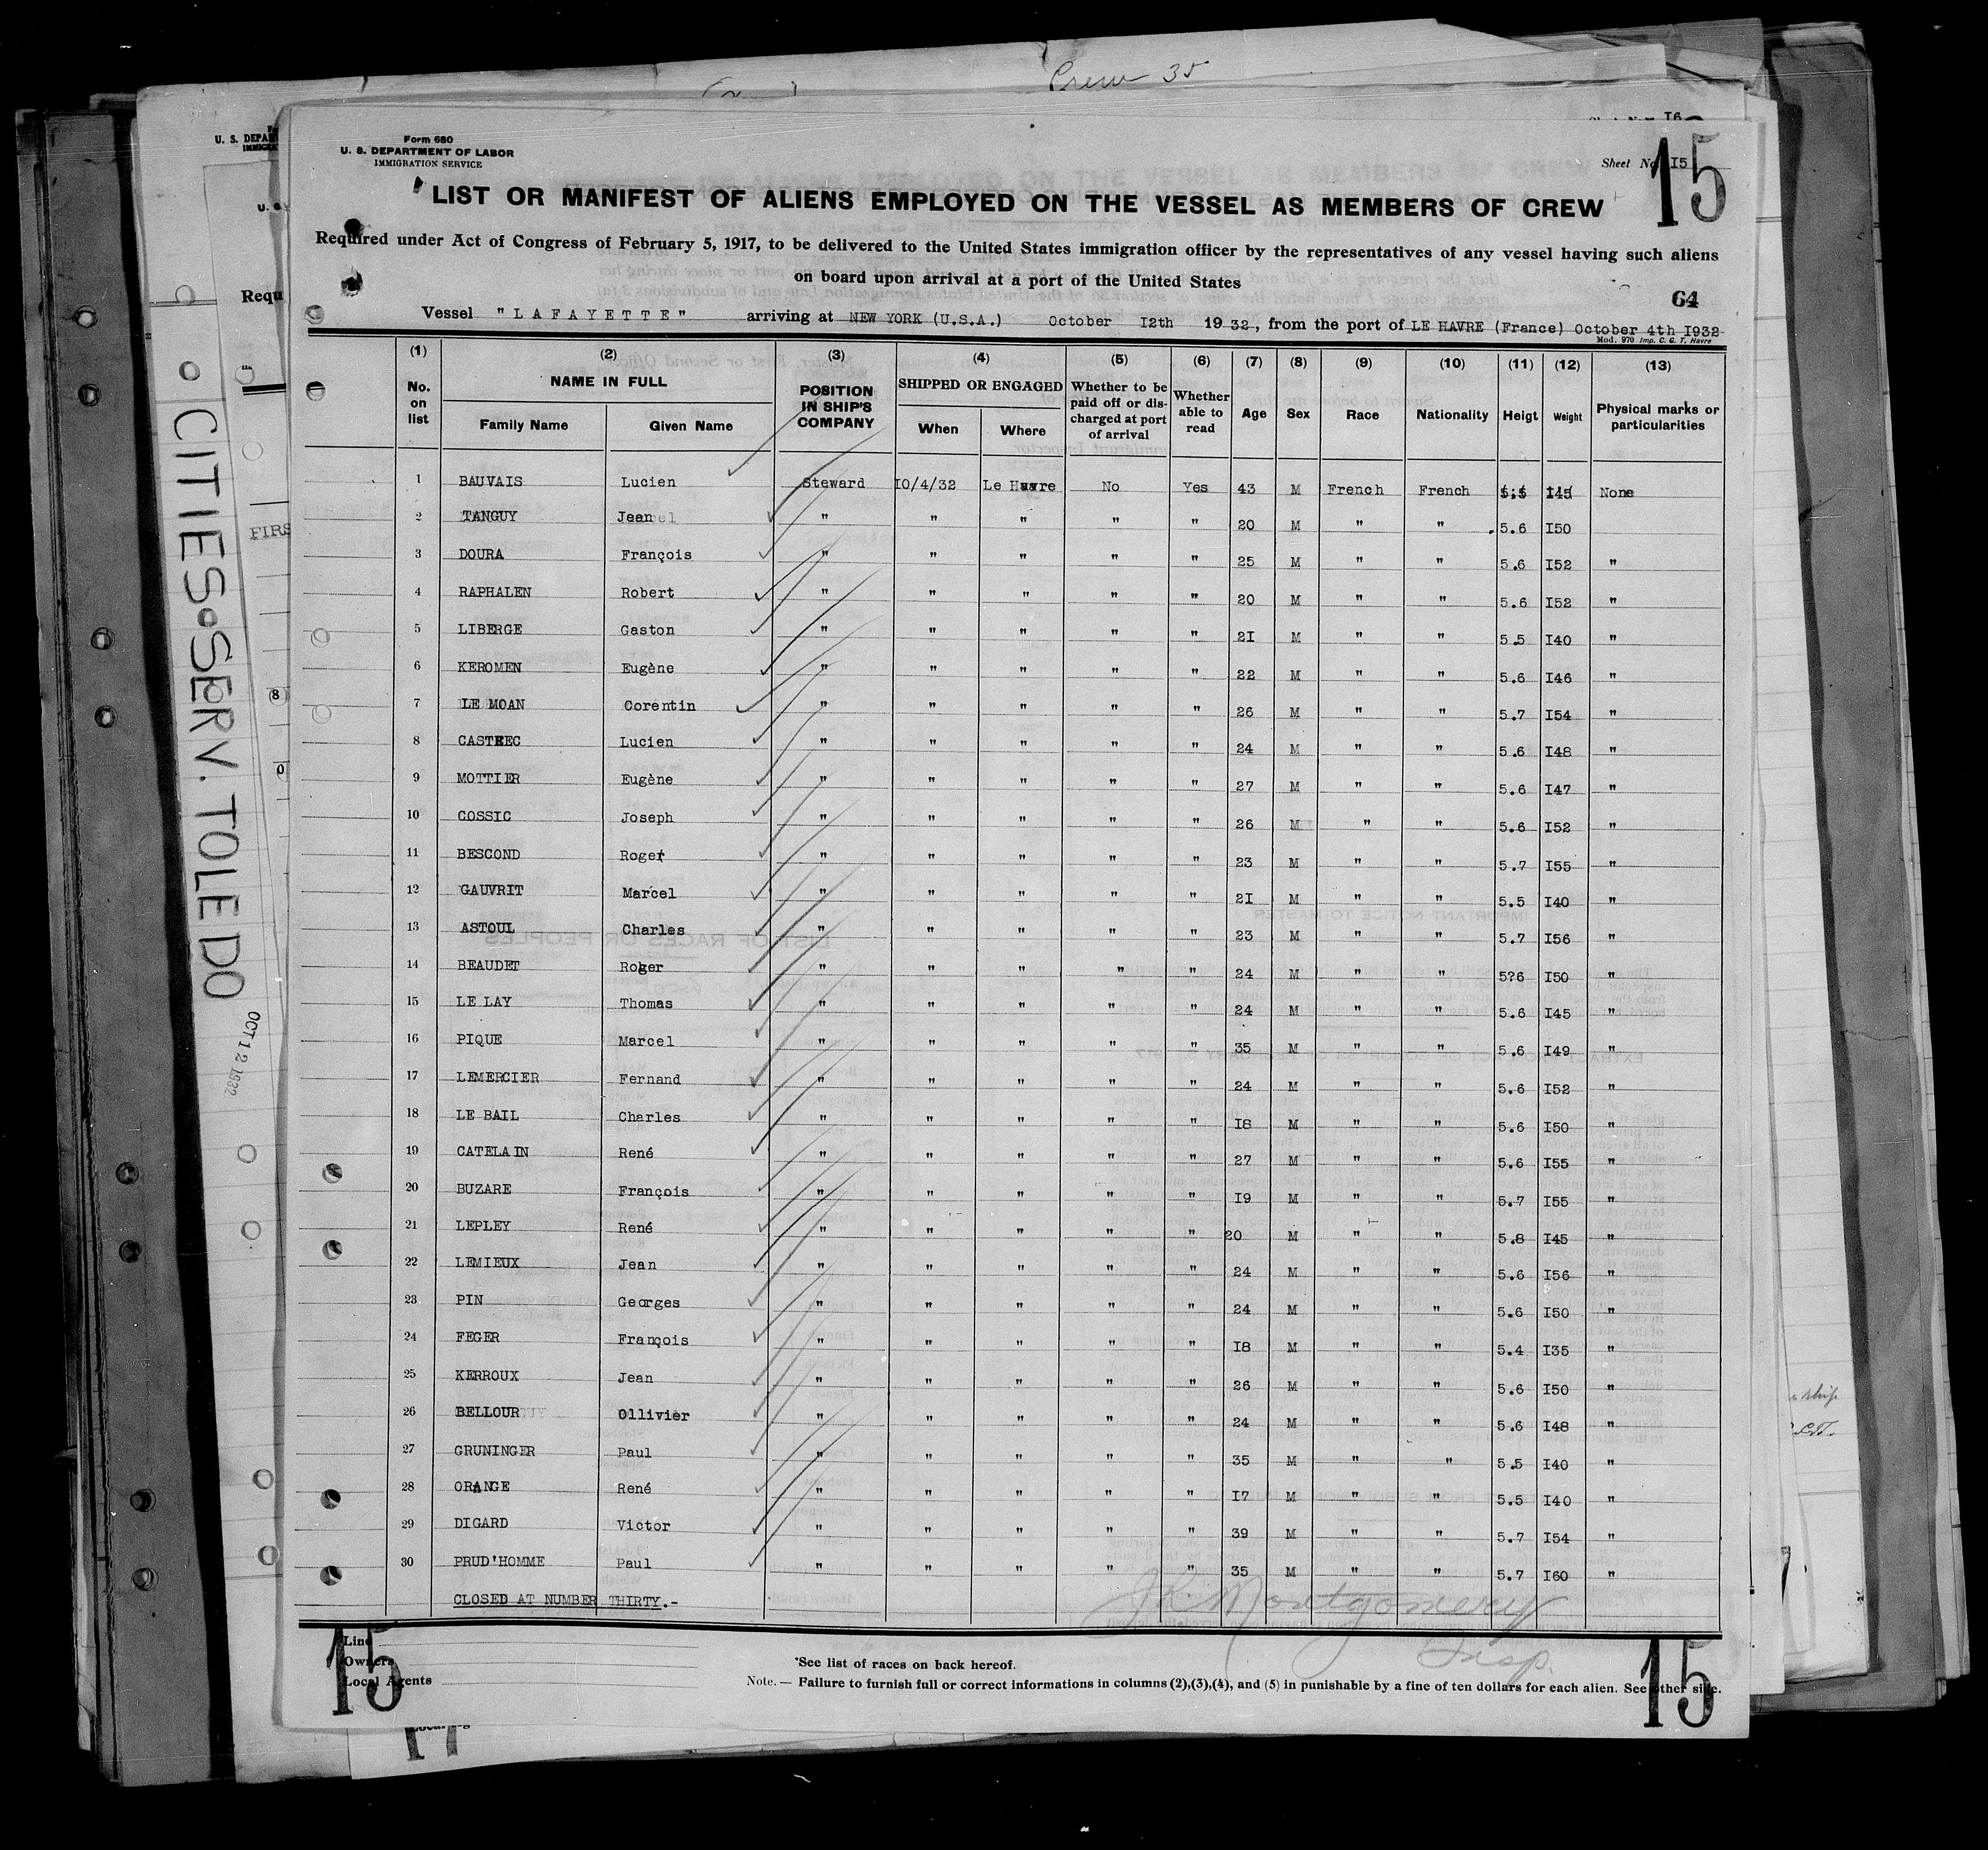 Crew 35
Form 680
U. S. DEPARTMENT OF LABOR
IMMIGRATION SERVICE
Sheet No. I5
15
LIST OR MANIFEST OF ALIENS EMPLOYED ON THE VESSEL AS MEMBERS OF CREW
Required under Act of Congress of February 5, 1917, to be delivered to the United States immigration officer by the representatives of any vessel having such aliens
on board upon arrival at a port of the United States
64
Vessel "LAFAYETTE" arriving at NEW YORK (U.S.A.) October I2th 1932, from the port of LE HAVRE (France) October 4th I932
Mod. 970 Imp. C. G. T. Havre
(1) No. on list (2) NAME IN FULL Family Name Given Name (3) POSITION IN SHIP'S COMPANY (4) SHIPPED OR ENGAGED When Where (5) Whether to be paid off or discharged at port of arrival (6) Whether able to read (7) Age (8) Sex (9) Race (10) Nationality (11) Heigt (12) Weight (13) Physical marks or particularities
1 BAUVAIS Lucien Steward I0/4/32 Le Havre No Yes 43 M French French 5;5 I45 None
2 TANGUY Jean " " " " " 20 M " " 5.6 I50
3 DOURA François " " " " " 25 M " " 5.6 I52 "
4 RAPHALEN Robert " " " " " 20 M " " 5.6 I52 "
5 LIBERGE Gaston " " " " " 2I M " " 5.5 I40 "
6 KEROMEN Eugène " " " " " 22 M " " 5.6 I46 "
7 LE MOAN Corentin " " " " " 26 M " " 5.7 I54 "
8 CASTREC Lucien " " " " " 24 M " " 5.6 I48 "
9 MOTTIER Eugène " " " " " 27 M " " 5.6 I47 "
10 COSSIC Joseph " " " " " 26 M " " 5.6 I52 "
11 BESCOND Roger " " " " " 23 M " " 5.7 I55 "
12 GAUVRIT Marcel " " " " " 2I M " " 5.5 I40 "
13 ASTOUL Charles " " " " " 23 M " " 5.7 I56 "
14 BEAUDET Roger " " " " " 24 M " " 5?6 I50 "
15 LE LAY Thomas " " " " " 24 M " " 5.6 I45 "
16 PIQUE Marcel " " " " " 35 M " " 5.6 I49 "
17 LEMERCIER Fernand " " " " " 24 M " " 5.6 I52 "
18 LE BAIL Charles " " " " " I8 M " " 5.6 I50 "
19 CATELAIN René " " " " " 27 M " " 5.6 I55 "
20 BUZARE François " " " " " I9 M " " 5.7 I55 "
21 LEPLEY René " " " " " 20 M " " 5.8 I45 "
22 LEMIEUX Jean " " " " " 24 M " " 5.6 I56 "
23 PIN Georges " " " " " 24 M " " 5.6 I50 "
24 FEGER François " " " " " I8 M " " 5.4 I35 "
25 KERROUX Jean " " " " " 26 M " " 5.6 I50 "
26 BELLOUR Ollivier " " " " " 24 M " " 5.6 I48 "
27 GRUNINGER Paul " " " " " 35 M " " 5.5 I40 "
28 ORANGE René " " " " " I7 M " " 5.5 I40 "
29 DIGARD Victor " " " " " 39 M " " 5.7 I54 "
30 PRUD'HOMME Paul " " " " " 35 M " " 5.7 I60 "
CLOSED AT NUMBER THIRTY.-
JK Montgomery
Insp.
Line
Owners
Local Agents
15
15
*See list of races on back hereof.
Note. — Failure to furnish full or correct informations in columns (2),(3),(4), and (5) in punishable by a fine of ten dollars for each alien. See other side.
17
CITIES SERV. TOLEDO
OCT 12 1932